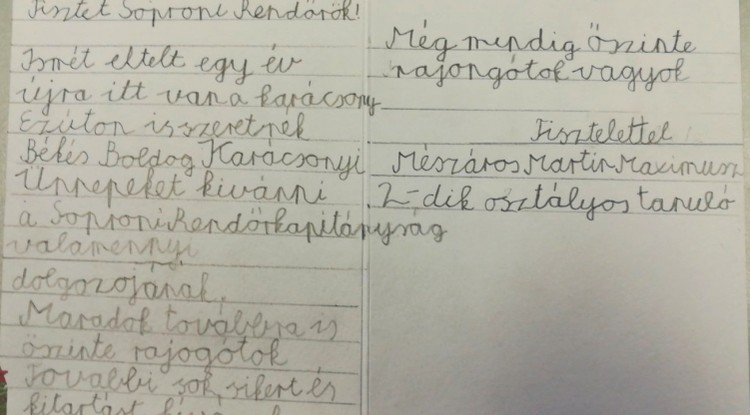 Tisztet Soproni Rendőrök!
Ismét eltelt egy év
újra itt van a karácsony
Ezúton is szeretnék
Békés Boldog Karácsonyi
Ünnepeket kivánni
a Soproni Rendőrkapitányság
valamennyi
dolgozojának,
Maradok továbbra is
őszinte rajogótok
További sok sikert és
kitartást
Még mindig őszinte
rajongótok vagyok
Tisztelettel
Mészáros Martin Maximusz
2-dik osztályos tanuló